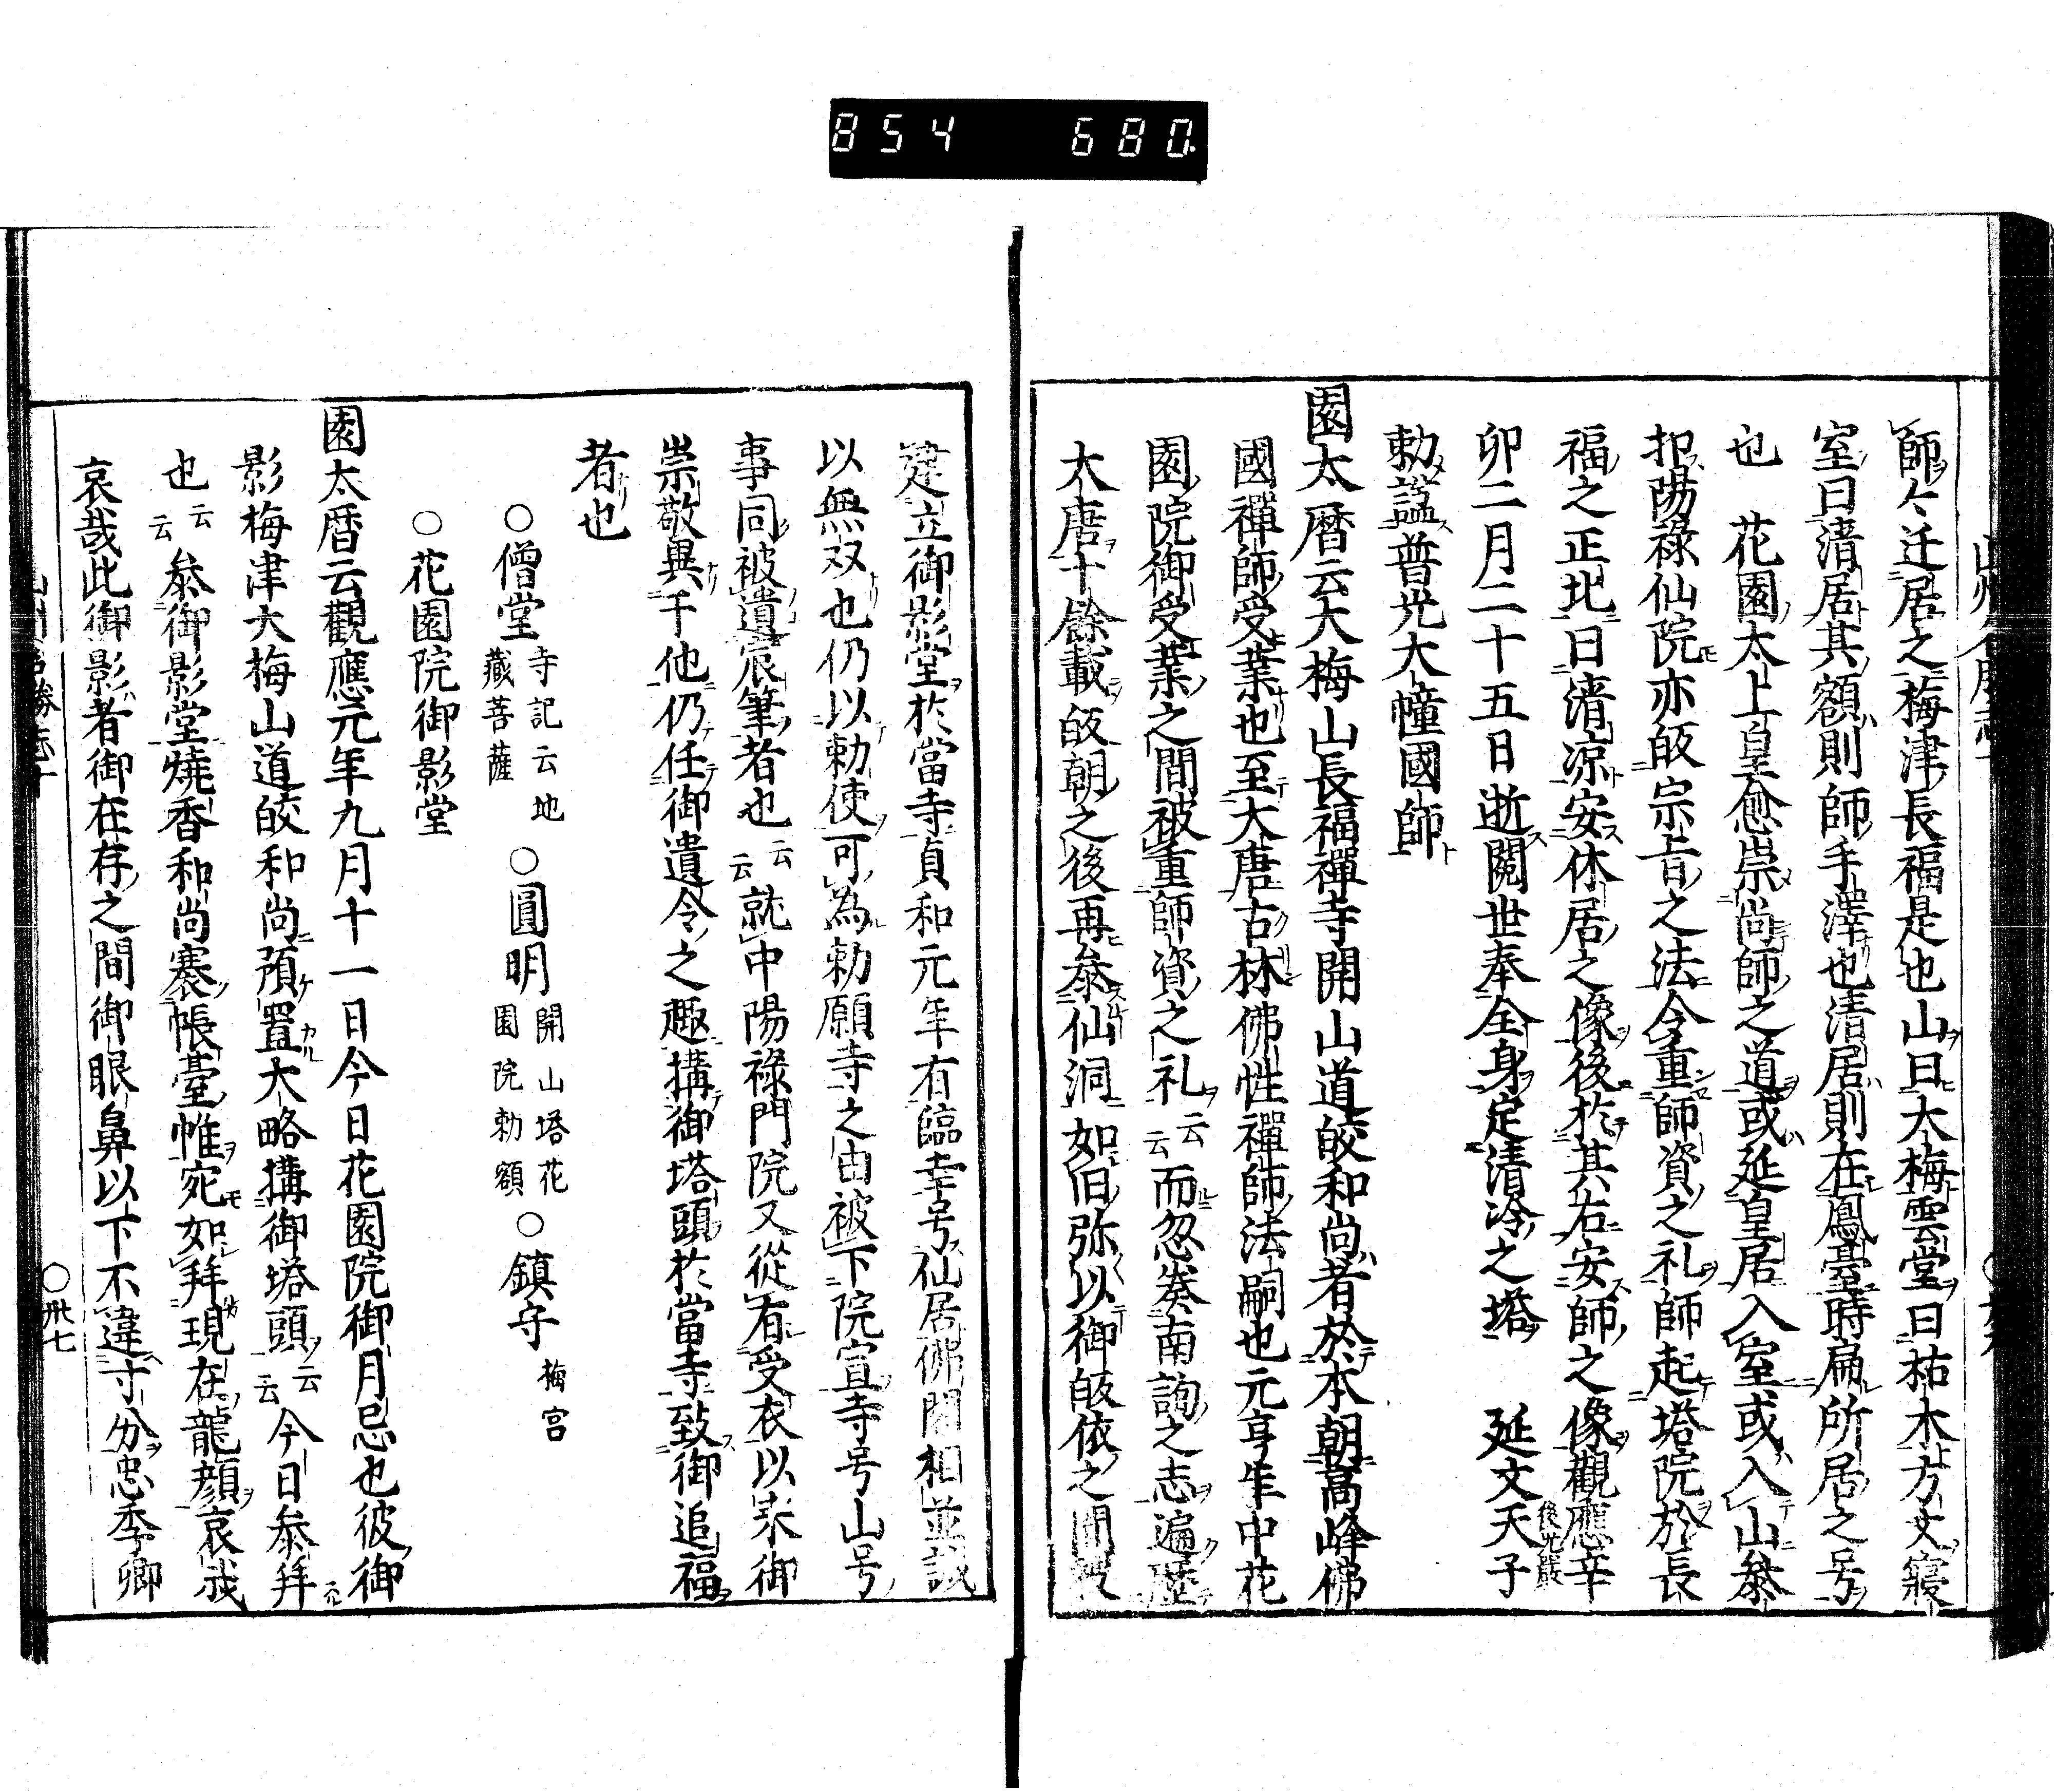 854 680.
師ヲ今迁居之梅津長福是也山ヲ曰大梅雲堂ヲ曰祐木方丈寢
室曰清居其額則師手澤也清居則在鳳臺時扁所居之号
也　花園太上皇愈崇尚師之道或延皇居入室或入山參
扣陽祿仙院亦皈宗旨之法令重師資之礼師起塔院於長
福之正北曰清凉安休居之像後於其右安師之像觀應辛
卯二月二十五日逝閱世奉全身定清冷之塔　延文天子後光嚴
勅諡普光大幢國師
園太暦云大梅山長福禪寺開山道皎和尚者於本朝高峰佛
國禪師受業也至大唐古林佛性禪師法嗣也元亨年中花
園院御受業之間被重師資之礼云云而忽羨南詢之志遍歴
大唐十餘載皈朝之後再參仙洞如旧弥以御皈依之間
建立御影堂於當寺貞和元年有臨幸号仙居佛閣相並誠
以無双也仍以勅使可為勅願寺之由被下院宣寺号山号
事同被遺宸筆者也云云就中陽祿門院又從有受衣以来御
崇敬異于他仍任御遺令之趣搆御塔頭於當寺致御追福
者也
○僧堂寺記云地藏菩薩　○圓明開山塔花園院勅額　○鎮守梅宮
○花園院御影堂
園太暦云觀應元年九月十一日今日花園院御月忌也彼御
影梅津大梅山道皎和尚預置大略搆御塔頭云云今日參拜
也云云參御影堂燒香和尚褰帳臺帷宛如拜現在龍顔哀哉
哀哉此御影者御在存之間御眼鼻以下不違寸分忠季卿
山州名勝志十
○卅七